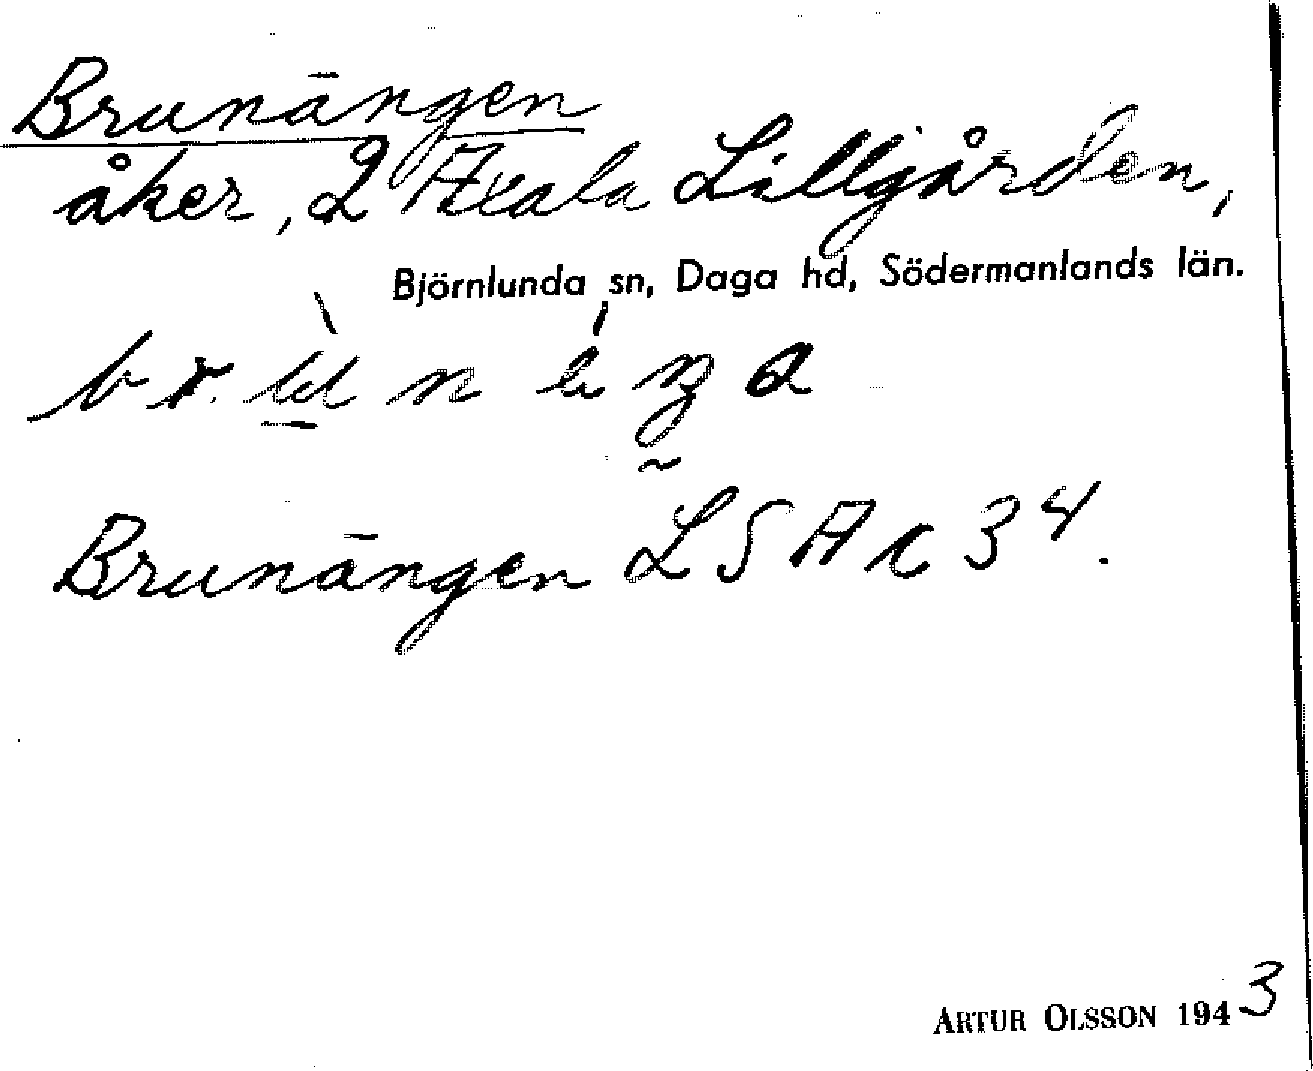 Brunängen
åker, 2 Axala Lillgården,
Björnlunda sn, Daga hd, Södermanlands län.
Brunängen LSA C 34.
ARTUR OLSSON 1943